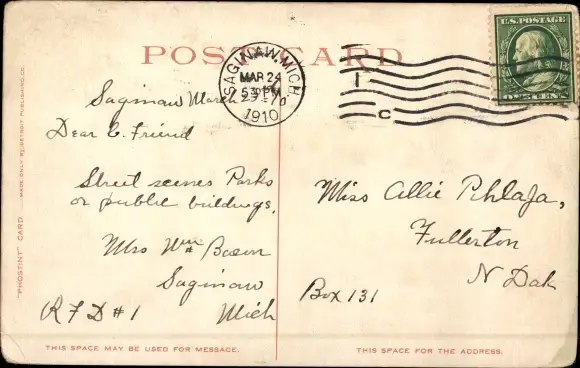 POST CARD
SAGINAW, MICH.
MAR 24
5 30 PM
1910
U.S. POSTAGE
ONE CENT
1
C
Saginaw March 23-10
Dear C. Friend
Street scenes Parks
or public buildings.
Mrs Wm Bacon
Saginaw
R F D # 1 Mich
Miss Allie Pihlaja,
Fullerton
N Dak
Box 131
"PHOSTINT" CARD MADE ONLY BY DETROIT PUBLISHING CO.
THIS SPACE MAY BE USED FOR MESSAGE.
THIS SPACE FOR THE ADDRESS.